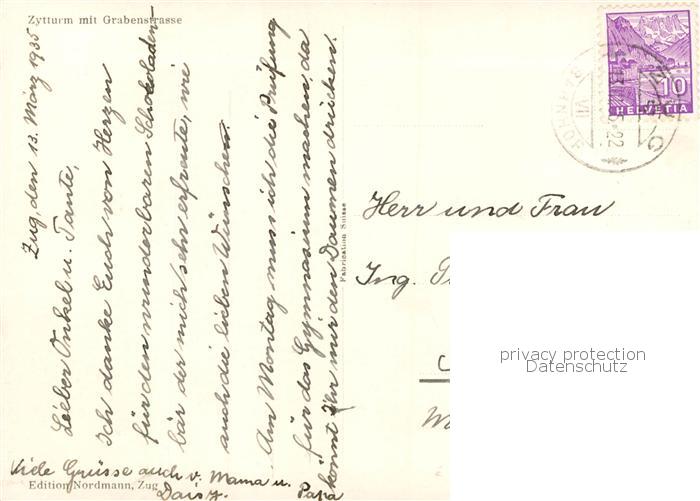 Zytturm mit Grabenstrasse
Zug, den 13. März 1935
Lieber Onkel u. Tante,
ich danke Euch von Herzen
für den wunderbaren Schokoladen-
bär der mich sehr erfreute, wie
auch die lieben Wünsche.
Am Montag muss ich die Prüfung
für das Gymnasium machen, da
könnt Ihr mir den Daumen drücken.
Viele Grüsse auch v. Mama u.
Papa
Daisy.
Edition Nordmann, Zug
Fabrication Suisse
10
HELVETIA
VII
22
Herr und Frau
Ing.
privacy protection
Datenschutz